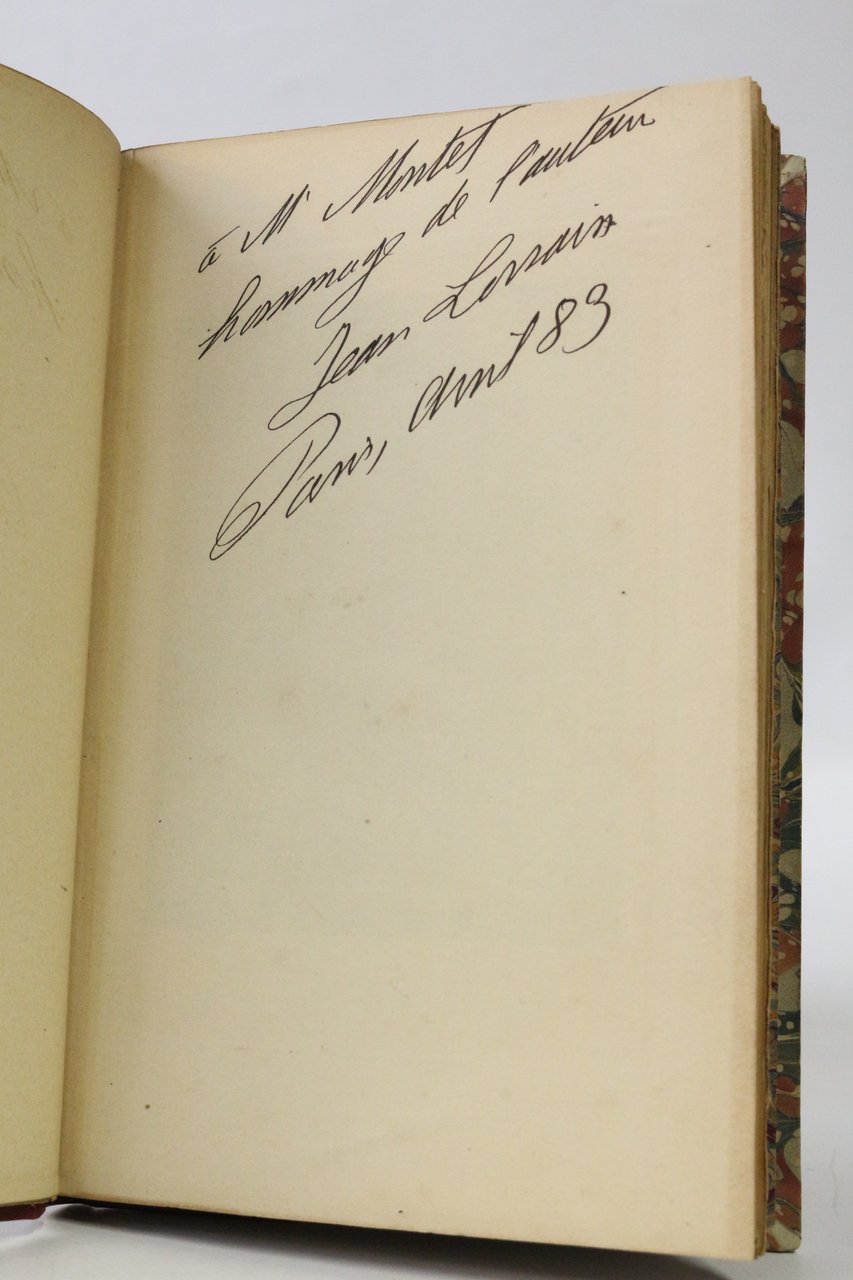 à Mr Montet
hommage de l'auteur
Jean Lorrain
Paris, avril 83